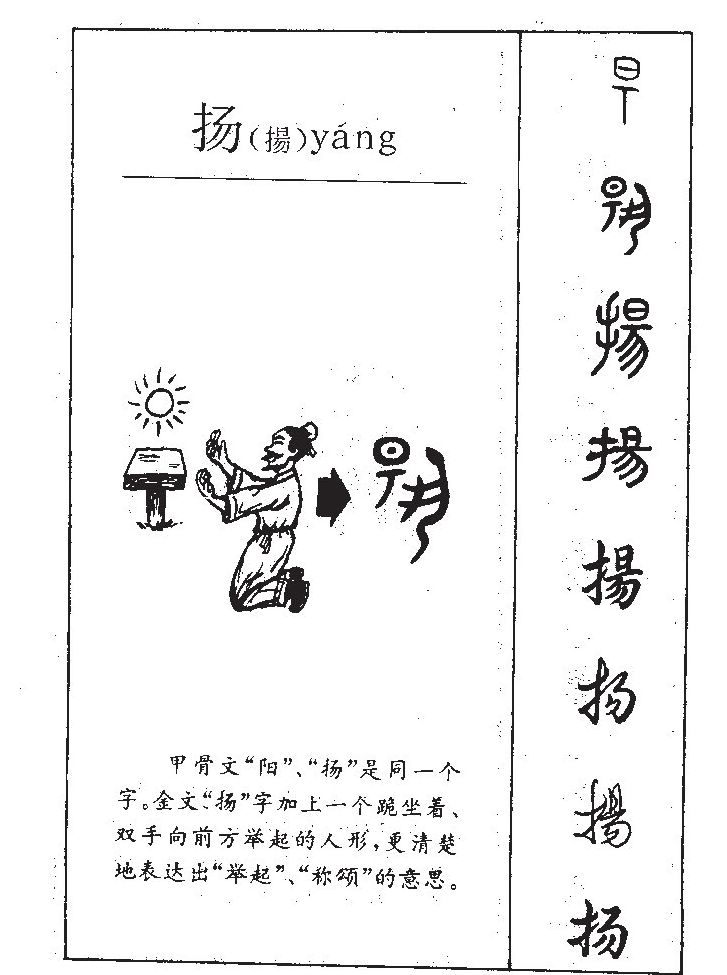 扬(揚)yáng
甲骨文“阳”、“扬”是同一个
字。金文“扬”字加上一个跪坐着、
双手向前方举起的人形,更清楚
地表达出“举起”、“称颂”的意思。
揚
揚
揚
扬
揚
扬